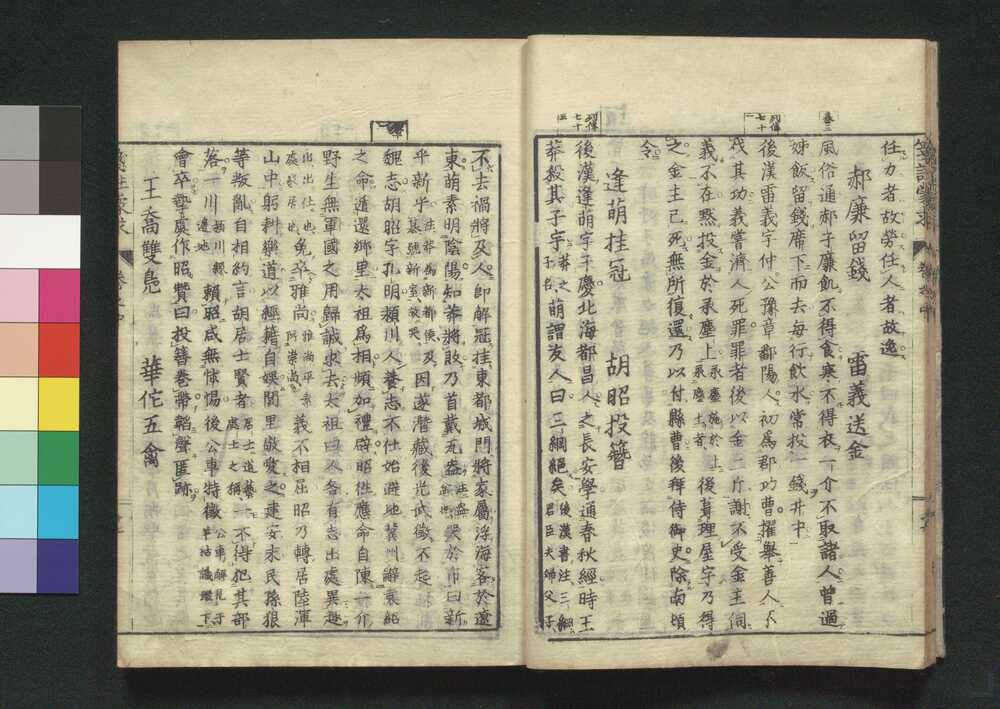 任力者故勞任人者故逸
郝廉留錢 雷義送金
風俗通郝子廉飢不得食寒不得衣一介不取諸人曾過
姊飯留錢席下而去每行飲水常投一錢井中
後漢雷義字仲公豫章鄱陽人初爲郡功曹擢舉善人不
伐其功義嘗濟人死罪罪者後以金二斤謝不受金主伺
義不在默投金於承塵上 後葺理屋宇乃得
之金主已死無所復還乃以付縣曹後拜侍御史除南頓
令
逢萌挂冠 胡昭投簪
後漢逢萌字子慶北海都昌人之長安學通春秋經時王
莽殺其子宇 莽之子名 萌謂友人曰三綱絕矣 後漢書注三綱君臣夫婦父子
不去禍將及人即解冠挂東都城門將家屬浮海客於遼
東萌素明陰陽知莽將敗乃首戴瓦盎 哭於市曰新
乎新乎 及因遂潛藏後光武徵不起
魏志胡昭字孔明潁川人養志不仕始避地冀州辭袁紹
之命遁還鄉里太祖爲相頻加禮辟昭往應命自陳一介
野生無軍國之用歸誠求去太祖曰人各有志出處異趣
勉卒雅尚 義不相屈昭乃轉居陸渾
山中躬耕樂道以經籍自娛閭里敬愛之建安末民孫狼
等叛亂自相約言胡居士賢者 一不得犯其部
落一川 賴昭咸無怵惕後公車特徵
會卒摯虞作昭贊曰投簪卷帶韜聲匿跡
王喬雙鳧 華佗五禽